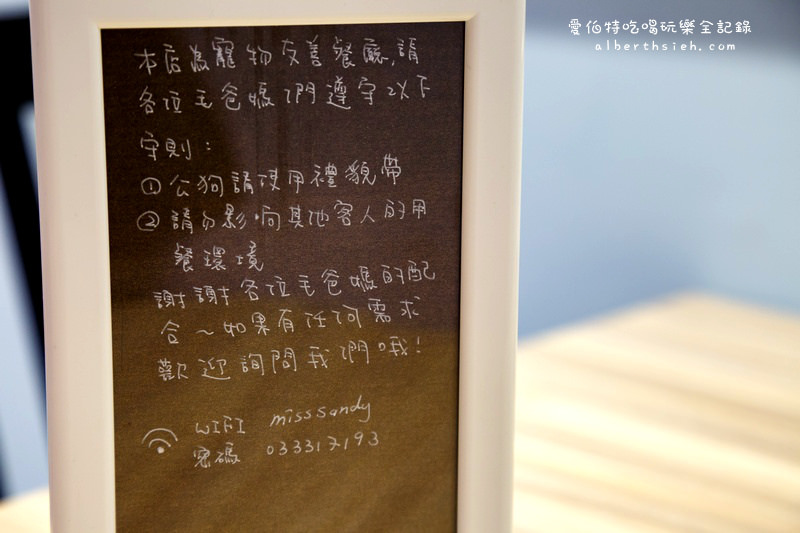 愛伯特吃喝玩樂全記錄
alberthsieh.com
本店為寵物友善餐廳,請
各位毛爸媽們遵守以下
守則：
① 公狗請使用禮貌帶
② 請勿影响其他客人的用
餐環境
謝謝各位毛爸媽的配
合～如果有任何需求
歡迎詢問我們哦!
WIFI misssandy
密碼 033317193